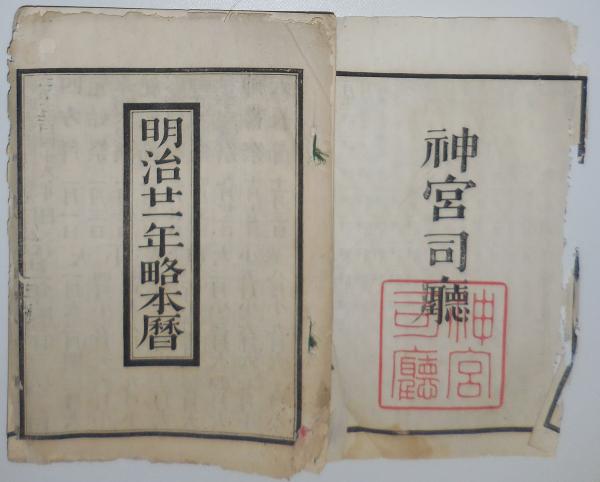 神宮司廳
神宮
司廳
明治廿一年略本暦